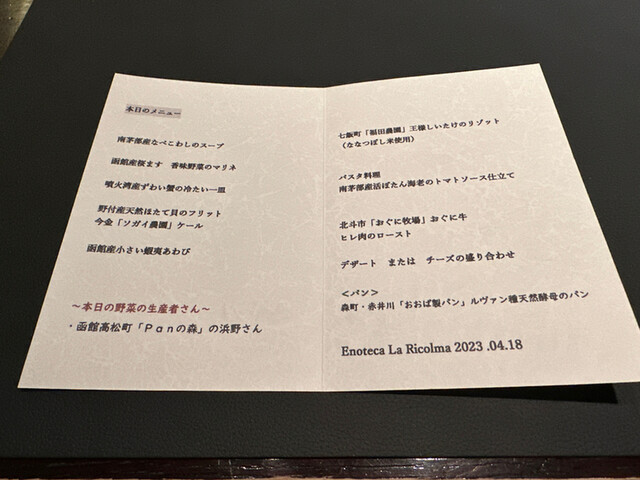 本日のメニュー
南茅部産なべこわしのスープ
函館産桜ます　香味野菜のマリネ
噴火湾産ずわい蟹の冷たい一皿
野付産天然ほたて貝のフリット
今金「ソガイ農園」ケール
函館産小さい蝦夷あわび
～本日の野菜の生産者さん～
・函館高松町「Ｐａｎの森」の浜野さん
七飯町「福田農園」王様しいたけのリゾット
（ななつぼし米使用）
パスタ料理
南茅部産活ぼたん海老のトマトソース仕立て
北斗市「おぐに牧場」おぐに牛
ヒレ肉のロースト
デザート　または　チーズの盛り合わせ
＜パン＞
森町・赤井川「おおば製パン」ルヴァン種天然酵母のパン
Enoteca La Ricolma 2023 .04.18